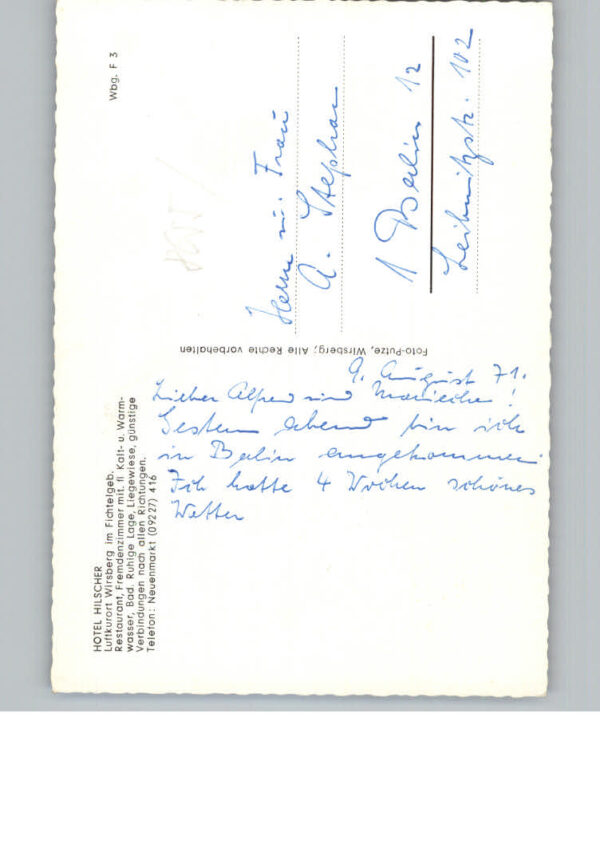 HOTEL HILSCHER
Luftkurort Wirsberg im Fichtelgeb.
Restaurant, Fremdenzimmer mit. fl Kalt- u. Warm-
wasser, Bad. Ruhige Lage, Liegewiese, günstige
Verbindungen nach allen Richtungen.
Telefon: Neuenmarkt (09227) 416
Wbg. F 3
Foto-Putze, Wirsberg; Alle Rechte vorbehalten
9. August 71.
Lieber Alfred und Mariechen!
Gestern abend bin ich
in Berlin angekommen
Ich hatte 4 Wochen schönes
Wetter
Herrn u. Frau
A. Stephan
1 Berlin 12
Leibnitzstr. 102